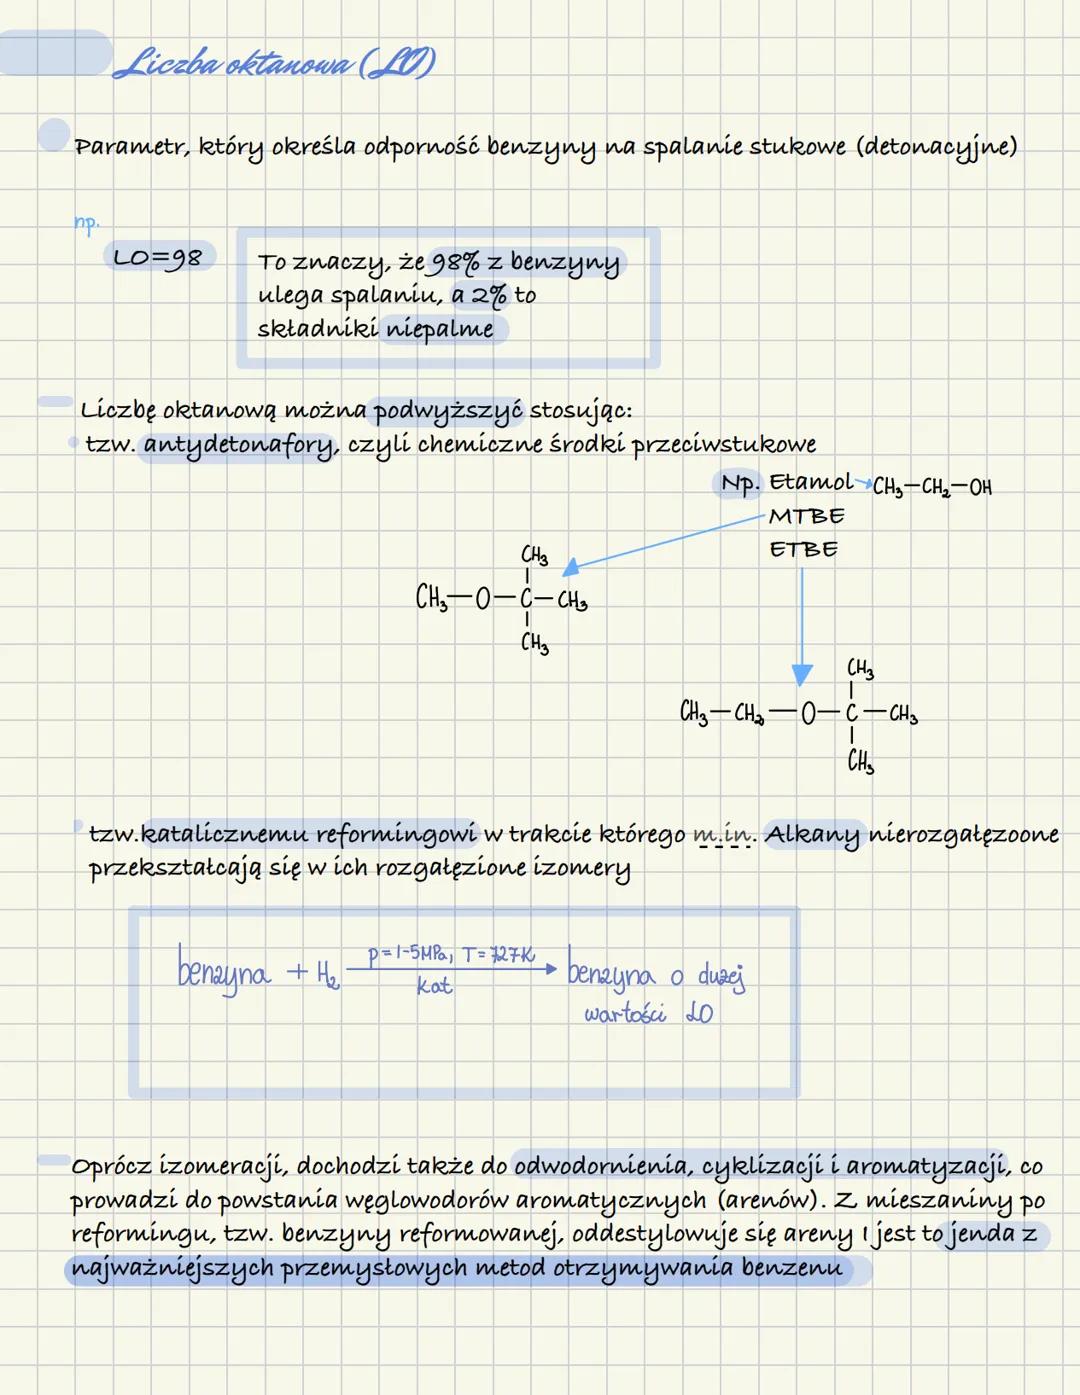 Liczba oktanowa (LO)
Parametr, który określa odporność benzyny na spalanie stukowe (detonacyjne)
np.
LO=98
To znaczy, że 98% z benzyny
ulega spalaniu, a 2% to
składniki niepalme
Liczbę oktanową można podwyższyć stosując:
tzw. antydetonafory, czyli chemiczne środki przeciwstukowe
Np. Etamol → CH₃—CH₂—OH
MTBE
ETBE
CH₃
CH₃—O—C—CH₃
CH₃
CH₃
CH₃—CH₂—O—C—CH₃
CH₃
tzw. katalicznemu reformingowi w trakcie którego m.in. Alkany nierozgałęzoone
przekształcają się w ich rozgałęzione izomery
p=1-5MPa, T=727K
benzyna + H₂ → benzyna o dużej
kat
wartości LO
Oprócz izomeracji, dochodzi także do odwodornienia, cyklizacji i aromatyzacji, co
prowadzi do powstania węglowodorów aromatycznych (arenów). Z mieszaniny po
reformingu, tzw. benzyny reformowanej, oddestylowuje się areny I jest to jenda z
najważniejszych przemysłowych metod otrzymywania benzenu